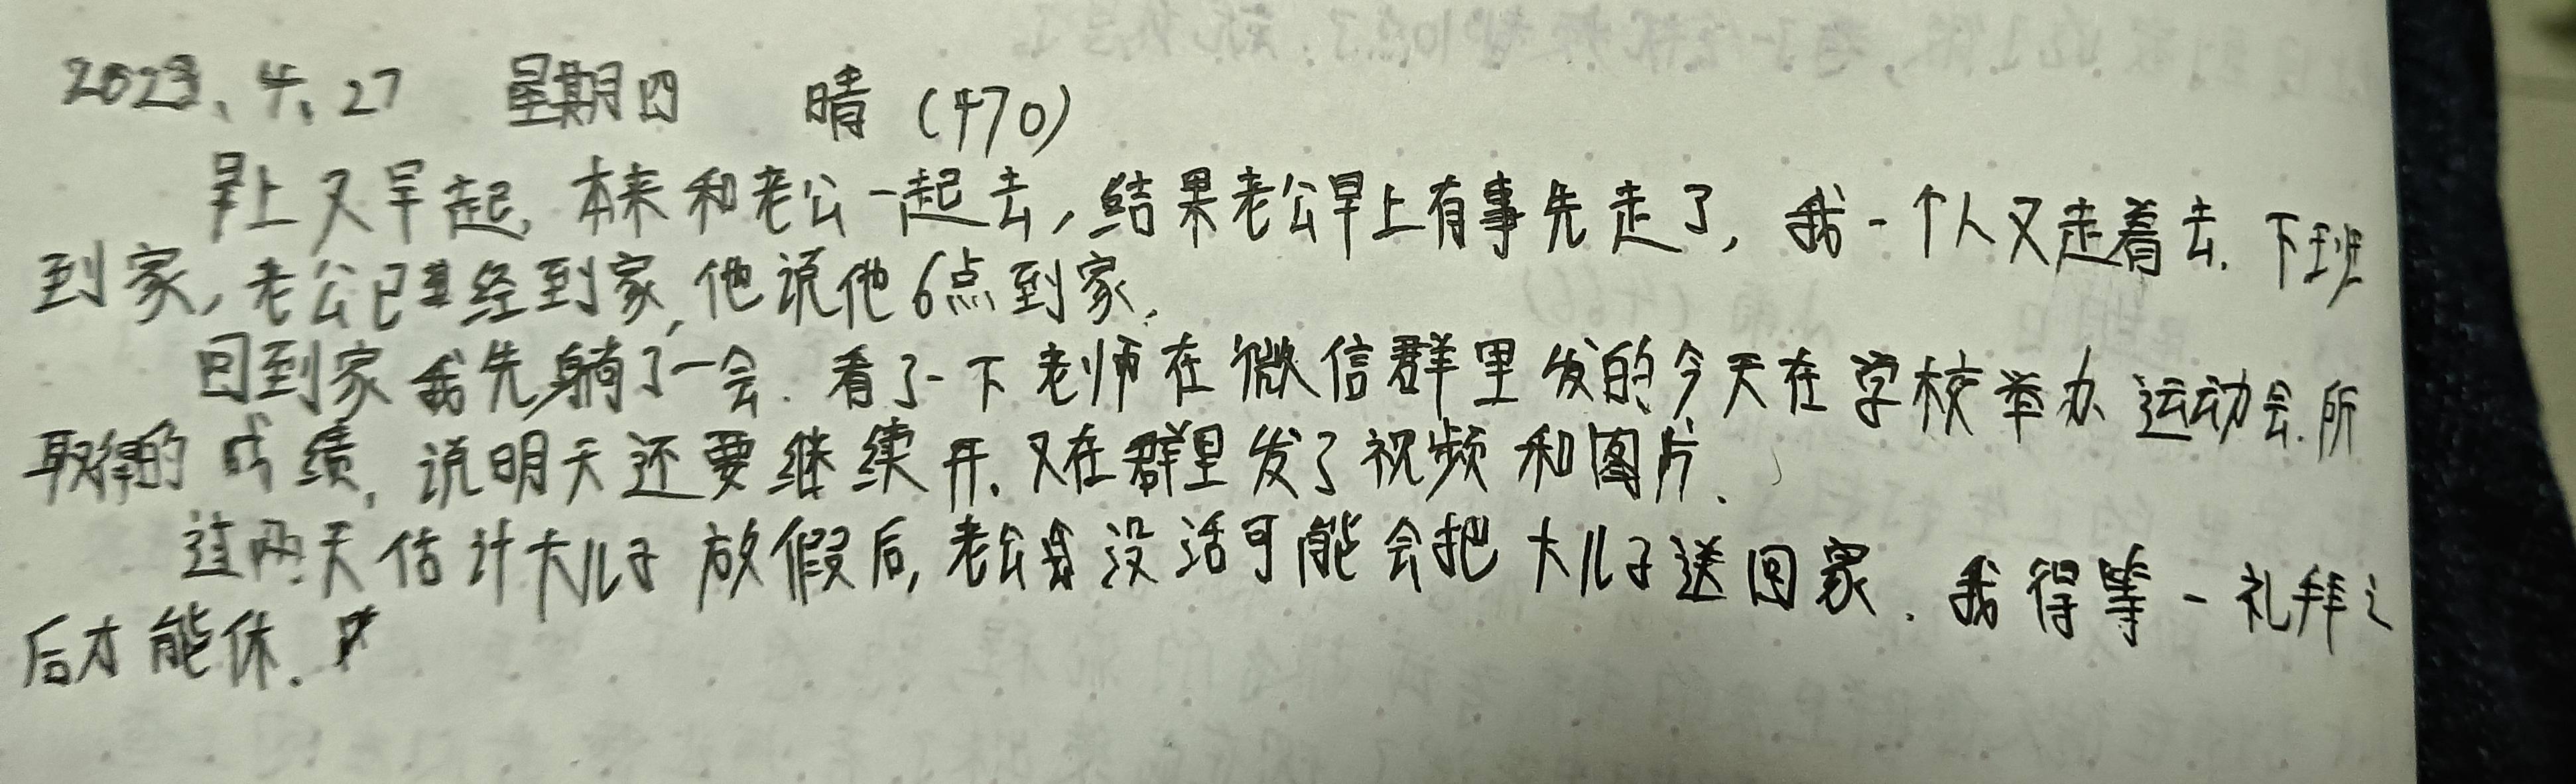 2023、4、27 星期四 晴（470）
早上又早起，本来和老公一起去，结果老公早上有事先走了，我一个人又走着去.下班
到家，老公已经到家，他说他6点到家.
回到家我先躺了一会.看了一下老师在微信群里发的今天在学校举办运动会.所
取得的成绩，说明天还要继续开.又在群里发了视频和图片.
过两天估计大儿子放假后，老公没活可能会把大儿子送回家.我得等一礼拜之
后才能休.